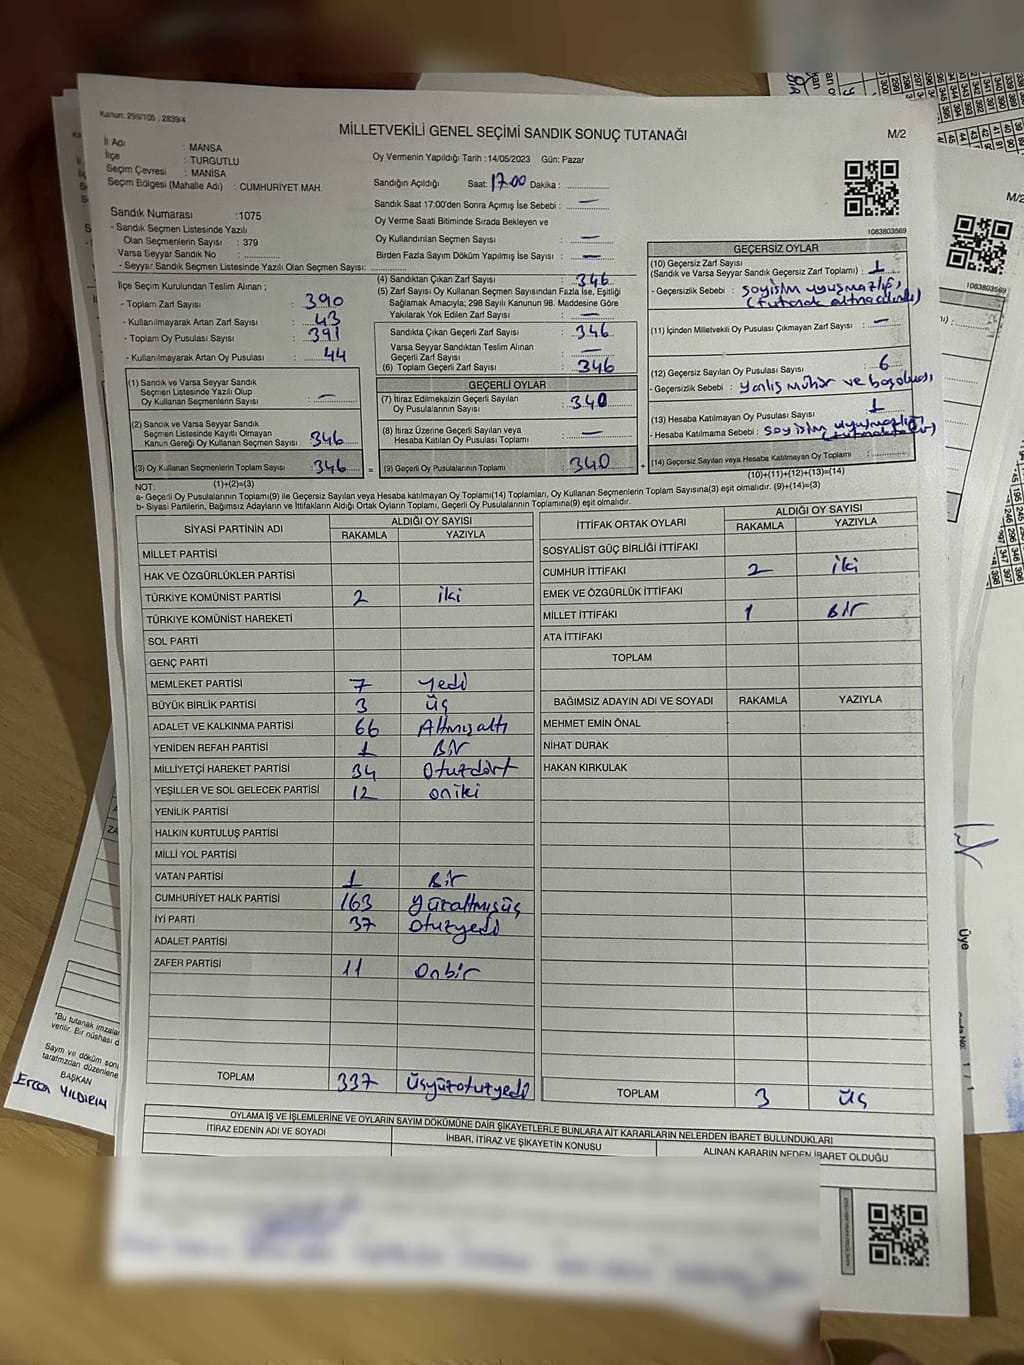 Kanun: 298/105 ; 2839/4
MİLLETVEKİLİ GENEL SEÇİMİ SANDIK SONUÇ TUTANAĞI
M/2
İl Adı : MANİSA
İlçe : TURGUTLU
Seçim Çevresi : MANİSA
Seçim Bölgesi (Mahalle Adı) : CUMHURİYET MAH.
Sandık Numarası :1075
- Sandık Seçmen Listesinde Yazılı
Olan Seçmenlerin Sayısı : 379
Varsa Seyyar Sandık No :
- Seyyar Sandık Seçmen Listesinde Yazılı Olan Seçmen Sayısı:
İlçe Seçim Kurulundan Teslim Alınan ;
- Toplam Zarf Sayısı : 390
- Kullanılmayarak Artan Zarf Sayısı : 43
- Toplam Oy Pusulası Sayısı : 391
- Kullanılmayarak Artan Oy Pusulası : 44
(1) Sandık ve Varsa Seyyar Sandık
Seçmen Listesinde Yazılı Olup
Oy Kullanan Seçmenlerin Sayısı : —
(2) Sandık ve Varsa Seyyar Sandık
Seçmen Listesinde Kayıtlı Olmayan
Kanun Gereği Oy Kullanan Seçmen Sayısı : 346
(3) Oy Kullanan Seçmenlerin Toplam Sayısı : 346 =
(1)+(2)=(3)
Oy Vermenin Yapıldığı Tarih : 14/05/2023 Gün: Pazar
Sandığın Açıldığı Saat: 17.00 Dakika :
Sandık Saat 17:00'den Sonra Açılmış İse Sebebi : —
Oy Verme Saati Bitiminde Sırada Bekleyen ve
Oy Kullandırılan Seçmen Sayısı : —
Birden Fazla Sayım Döküm Yapılmış İse Sayısı : —
(4) Sandıktan Çıkan Zarf Sayısı : 346
(5) Zarf Sayısı Oy Kullanan Seçmen Sayısından Fazla İse, Eşitliği
Sağlamak Amacıyla; 298 Sayılı Kanunun 98. Maddesine Göre
Yakılarak Yok Edilen Zarf Sayısı : —
Sandıkta Çıkan Geçerli Zarf Sayısı : 346
Varsa Seyyar Sandıktan Teslim Alınan
Geçerli Zarf Sayısı : —
(6) Toplam Geçerli Zarf Sayısı : 346
GEÇERLİ OYLAR
(7) İtiraz Edilmeksizin Geçerli Sayılan
Oy Pusulalarının Sayısı : 340
(8) İtiraz Üzerine Geçerli Sayılan veya
Hesaba Katılan Oy Pusulası Toplamı : —
(9) Geçerli Oy Pusulalarının Toplamı : 340 +
1083803569
GEÇERSİZ OYLAR
(10) Geçersiz Zarf Sayısı
(Sandık ve Varsa Seyyar Sandık Geçersiz Zarf Toplamı) : 1
- Geçersizlik Sebebi : soyisim uyuşmazlığı,
(11) İçinden Milletvekili Oy Pusulası Çıkmayan Zarf Sayısı : —
(12) Geçersiz Sayılan Oy Pusulası Sayısı : 6
- Geçersizlik Sebebi : yanlış mühür ve boş olması
(13) Hesaba Katılmayan Oy Pusulası Sayısı : 1
- Hesaba Katılmama Sebebi : soyisim uyuşmazlığı
(14) Geçersiz Sayılan veya Hesaba Katılmayan Oy Toplamı :
(10)+(11)+(12)+(13)=(14)
NOT:
a- Geçerli Oy Pusulalarının Toplamı(9) ile Geçersiz Sayılan veya Hesaba katılmayan Oy Toplamı(14) Toplamları, Oy Kullanan Seçmenlerin Toplam Sayısına(3) eşit olmalıdır. (9)+(14)=(3)
b- Siyasi Partilerin, Bağımsız Adayların ve İttifakların Aldığı Ortak Oyların Toplamı, Geçerli Oy Pusulalarının Toplamına(9) eşit olmalıdır.
SİYASİ PARTİNİN ADI ALDIĞI OY SAYISI
RAKAMLA YAZIYLA
MİLLET PARTİSİ
HAK VE ÖZGÜRLÜKLER PARTİSİ
TÜRKİYE KOMÜNİST PARTİSİ 2 iki
TÜRKİYE KOMÜNİST HAREKETİ
SOL PARTİ
GENÇ PARTİ
MEMLEKET PARTİSİ 7 yedi
BÜYÜK BİRLİK PARTİSİ 3 üç
ADALET VE KALKINMA PARTİSİ 66 Altmışaltı
YENİDEN REFAH PARTİSİ 1 Bir
MİLLİYETÇİ HAREKET PARTİSİ 34 Otuzdört
YEŞİLLER VE SOL GELECEK PARTİSİ 12 oniki
YENİLİK PARTİSİ
HALKIN KURTULUŞ PARTİSİ
MİLLİ YOL PARTİSİ
VATAN PARTİSİ 1 Bir
CUMHURİYET HALK PARTİSİ 163 yüzaltmışüç
İYİ PARTİ 37 Otuzyedi
ADALET PARTİSİ
ZAFER PARTİSİ 11 Onbir
TOPLAM 337 Üçyüzotuzyedi
İTTİFAK ORTAK OYLARI ALDIĞI OY SAYISI
RAKAMLA YAZIYLA
SOSYALİST GÜÇ BİRLİĞİ İTTİFAKI
CUMHUR İTTİFAKI 2 iki
EMEK VE ÖZGÜRLÜK İTTİFAKI
MİLLET İTTİFAKI 1 Bir
ATA İTTİFAKI
TOPLAM
BAĞIMSIZ ADAYIN ADI VE SOYADI RAKAMLA YAZIYLA
MEHMET EMİN ÖNAL
NİHAT DURAK
HAKAN KIRKULAK
TOPLAM 3 üç
OYLAMA İŞ VE İŞLEMLERİNE VE OYLARIN SAYIM DÖKÜMÜNE DAİR ŞİKAYETLERLE BUNLARA AİT KARARLARIN NELERDEN İBARET BULUNDUKLARI
İTİRAZ EDENİN ADI VE SOYADI İHBAR, İTİRAZ VE ŞİKAYETİN KONUSU ALINAN KARARIN NEDEN İBARET OLDUĞU
"Bu tutanak imzalar
verilir. Bir nüshası d
Sayım ve döküm sonu
tarafımızdan düzenlene
BAŞKAN
Ercan YILDIRIM
M/2
1083803569
Üye